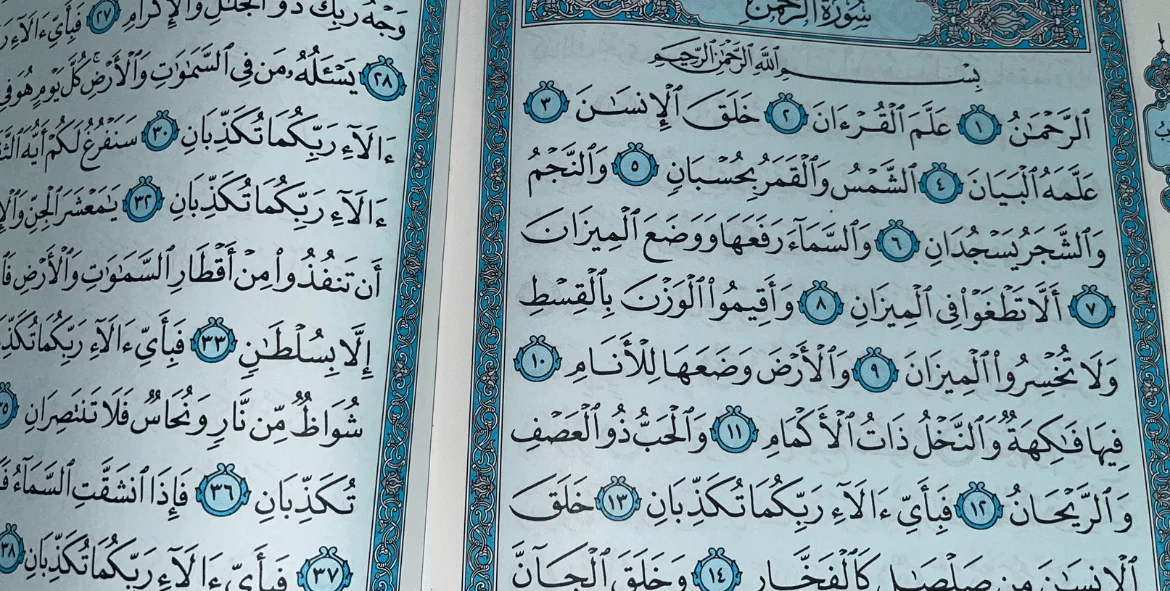 سُورَةُ الرَّحْمَٰن
بِسْمِ ٱللَّهِ ٱلرَّحْمَٰنِ ٱلرَّحِيمِ
ٱلرَّحْمَٰنُ ١ عَلَّمَ ٱلْقُرْءَانَ ٢ خَلَقَ ٱلْإِنسَٰنَ ٣
عَلَّمَهُ ٱلْبَيَانَ ٤ ٱلشَّمْسُ وَٱلْقَمَرُ بِحُسْبَانٍ ٥ وَٱلنَّجْمُ
وَٱلشَّجَرُ يَسْجُدَانِ ٦ وَٱلسَّمَآءَ رَفَعَهَا وَوَضَعَ ٱلْمِيزَانَ
٧ أَلَّا تَطْغَوْا۟ فِى ٱلْمِيزَانِ ٨ وَأَقِيمُوا۟ ٱلْوَزْنَ بِٱلْقِسْطِ
وَلَا تُخْسِرُوا۟ ٱلْمِيزَانَ ٩ وَٱلْأَرْضَ وَضَعَهَا لِلْأَنَامِ ١٠
فِيهَا فَٰكِهَةٌ وَٱلنَّخْلُ ذَاتُ ٱلْأَكْمَامِ ١١ وَٱلْحَبُّ ذُو ٱلْعَصْفِ
وَٱلرَّيْحَانُ ١٢ فَبِأَىِّ ءَالَآءِ رَبِّكُمَا تُكَذِّبَانِ ١٣ خَلَقَ
ٱلْإِنسَٰنَ مِن صَلْصَٰلٍ كَٱلْفَخَّارِ ١٤ وَخَلَقَ ٱلْجَآنَّ
وَجْهُ رَبِّكَ ذُو ٱلْجَلَٰلِ وَٱلْإِكْرَامِ ٢٧ فَبِأَىِّ ءَالَآءِ
٢٨ يَسْـَٔلُهُۥ مَن فِى ٱلسَّمَٰوَٰتِ وَٱلْأَرْضِ كُلَّ يَوْمٍ هُوَ فِى
ءَالَآءِ رَبِّكُمَا تُكَذِّبَانِ ٣٠ سَنَفْرُغُ لَكُمْ أَيُّهَ
ءَالَآءِ رَبِّكُمَا تُكَذِّبَانِ ٣٢ يَٰمَعْشَرَ ٱلْجِنِّ
أَن تَنفُذُوا۟ مِنْ أَقْطَارِ ٱلسَّمَٰوَٰتِ وَٱلْأَرْضِ
إِلَّا بِسُلْطَٰنٍ ٣٣ فَبِأَىِّ ءَالَآءِ رَبِّكُمَا
شُوَاظٌ مِّن نَّارٍ وَنُحَاسٌ فَلَا تَنتَصِرَانِ ٣٥
تُكَذِّبَانِ ٣٦ فَإِذَا ٱنشَقَّتِ ٱلسَّمَآءُ
٣٧ فَبِأَىِّ ءَالَآءِ رَبِّكُمَا تُكَذِّبَانِ ٣٨